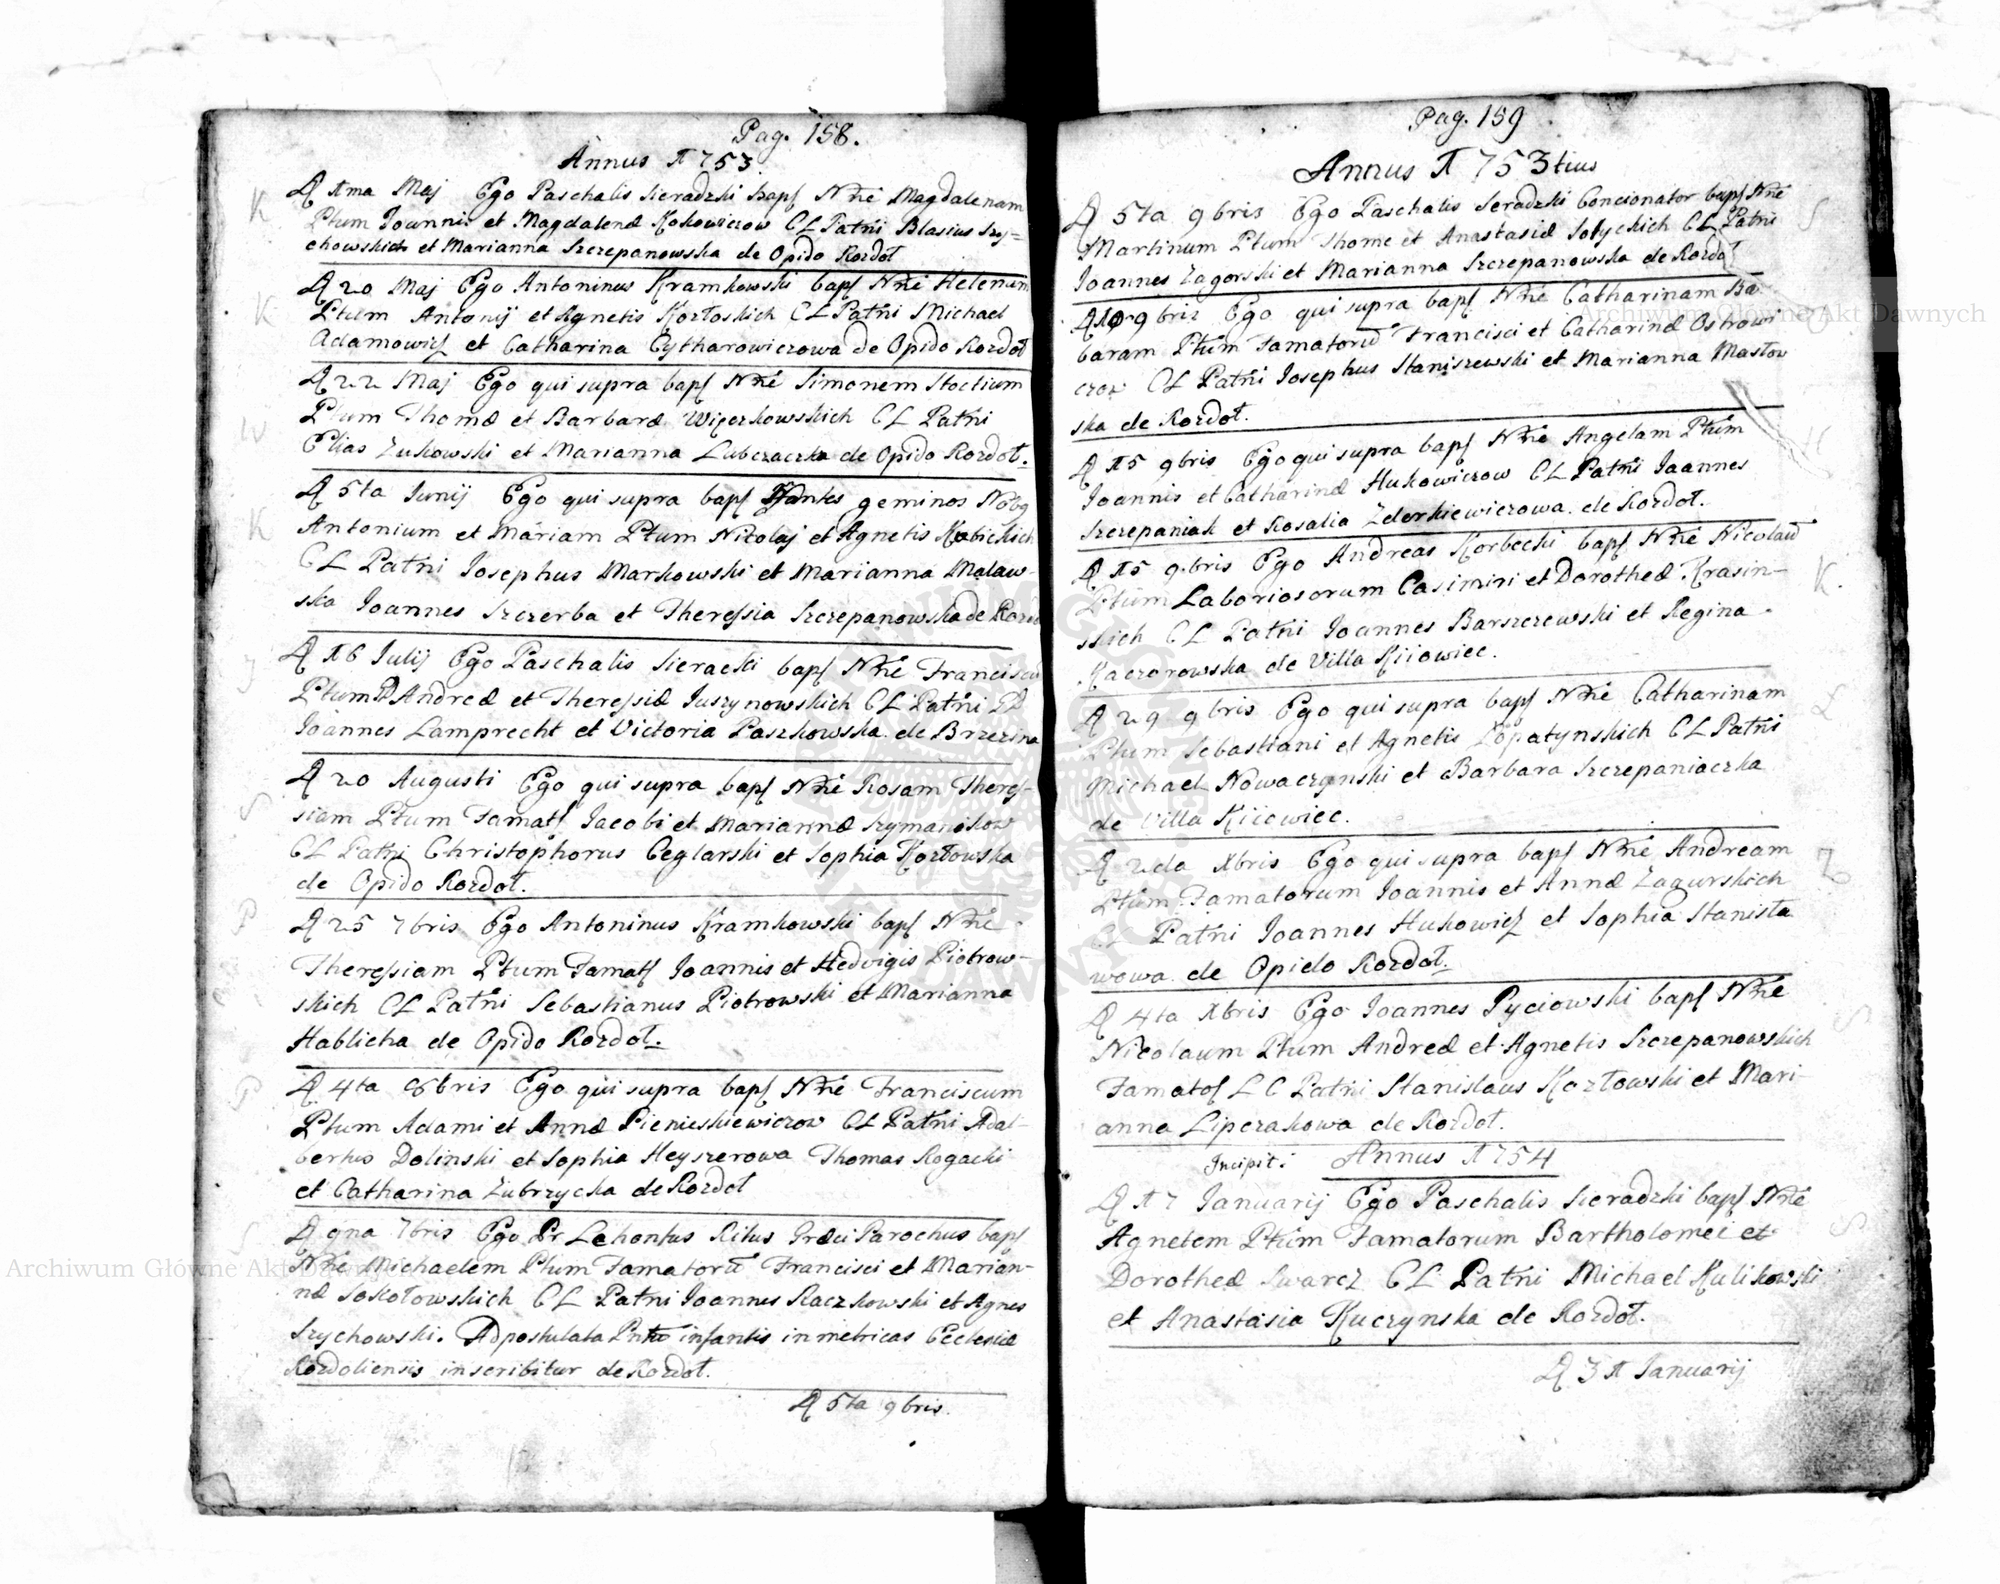 Pag. 158.
Annus 1753.
D 1ma Maj Ego Paschalis Sieradzki bapt Nñe Magdalenam
Ptum Joannis et Magdalenæ Kokowiczow CL Patñi Blasius Szy=
chowskich et Marianna Szczepanowska de Opido Kozdoł
D 20 Maj Ego Antoninus Kramkowski bapt Nñe Helenam
Ptum Antonij et Agnetis Kozłoskich CL Patñi Michael
Adamowicz et Catharina Cytharowiczowa de Opido Kozdoł
D 22 Maj Ego qui supra bapt Nñe Simonem Stoctium
Ptum Thomæ et Barbaræ Więczkowskich CL Patñi
Elias Zukowski et Marianna Lubczaczka de Opido Kozdoł.
D 5ta Junij Ego qui supra bapt geminos
Antonium et Mariam Ptum Nicolaj et Agnetis Kobickich
CL Patñi Josephus Markowski et Marianna Malaw-
ska Joannes Szczerba et Theressia Szczepanowska de Kozd
D 16 Julij Ego Paschalis Sieracki bapt Nñe Franciscu
Ptum D Andreæ et Theressiæ Juszynowskich CL Patñi
Joannes Lamprecht et Victoria Paszkowska de Brzezina
D 20 Augusti Ego qui supra bapt Nñe Rosam Theres-
siam Ptum Famatt Jacobi et Mariannæ Szymanskow
CL Patñi Christophorus Ceglarski et Sophia Kozłowska
de Opido Kozdoł.
D 25 7bris Ego Antoninus Kramkowski bapt Nñe
Theressiam Ptum Famatt Joannis et Hedvigis Piotrow-
skich CL Patñi Sebastianus Piotrowski et Marianna
Hablicha de Opido Kozdoł.
D 4ta 8bris Ego qui supra bapt Nñe Franciscum
Ptum Adami et Annæ Pienieskiewiczow CL Patñi Adal-
bertus Dolinski et Sophia Heyszerowa Thomas Rogacki
et Catharina Zubrzycka de Kozdoł
D 9na 7bris Ego Pr Lehontus Ritus Græci Parochus bapt
Nñe Michaelem Ptum Famatorũ Francisci et Marian-
næ Sokołowskich CL Patñi Joannes Raczkowski et Agnes
Szychowski. Ad postulata Pntũ infantis in metricas Ecclesiæ
Kozdoliensis inscribitur de Kozdoł.
D 5ta 9bris.
Pag. 159
Annus 1753tius
D 5ta 9bris Ego Paschalis Seradzki Concionator bapt Nñe
Martinum Ptum Thome et Anastasiæ Sobyckich CL Patñi
Joannes Zagorski et Marianna Szczepanowska de Kozdoł
D 10 9bris Ego qui supra bapt Nñe Catharinam Ba
baram Ptum Famatorũ Francisci et Catharinæ Ostrowi
czow CL Patñi Josephus Staniszewski et Marianna Masłow
ska de Kozdoł.
D 15 9bris Ego qui supra bapt Nñe Angelam Ptum
Joannis et Catharinæ Hukowiczow CL Patñi Joannes
Szczepaniak et Rosalia Zderkiewiczowa de Kozdoł.
D 15 9bris Ego Andreas Korbecki bapt Nñe Nicolaũ
Ptum Laboriosorum Casimiri et Dorotheæ Krasin-
skich CL Patñi Joannes Barszczewski et Regina
Kaczorowska de Villa Kiiowiec.
D 29 9bris Ego qui supra bapt Nñe Catharinam
Ptum Sebastiani et Agnetis Łopatynskich CL Patñi
Michael Nowaczynski et Barbara Szczepaniaczka
de Villa Kiiowiec.
D 2da Xbris Ego qui supra bapt Nñe Andream
Ptum Famatorum Joannis et Annæ Zagurskich
CL Patñi Joannes Hukowicz et Sophia Stanisła
wowa de Opido Kozdoł.
D 4ta Xbris Ego Joannes Pyciowski bapt Nñe
Nicolaum Ptum Andreæ et Agnetis Szczepanowskich
Famatoſ LC Patñi Stanislaus Kozłowski et Mari-
anna Lipczakowa de Kozdoł.
Incipit: Annus 1754
D 17 Januarij Ego Paschalis Sieradzki bapt Nñe
Agnetem Ptum Famatorum Bartholomei et
Dorotheæ Swarcz CL Patñi Michael Kulikowski
et Anastasia Kuczynska de Kozdoł.
D 31 Januarij
Archiwum Główne Akt Dawnych
Archiwum Główne Akt Dawnych